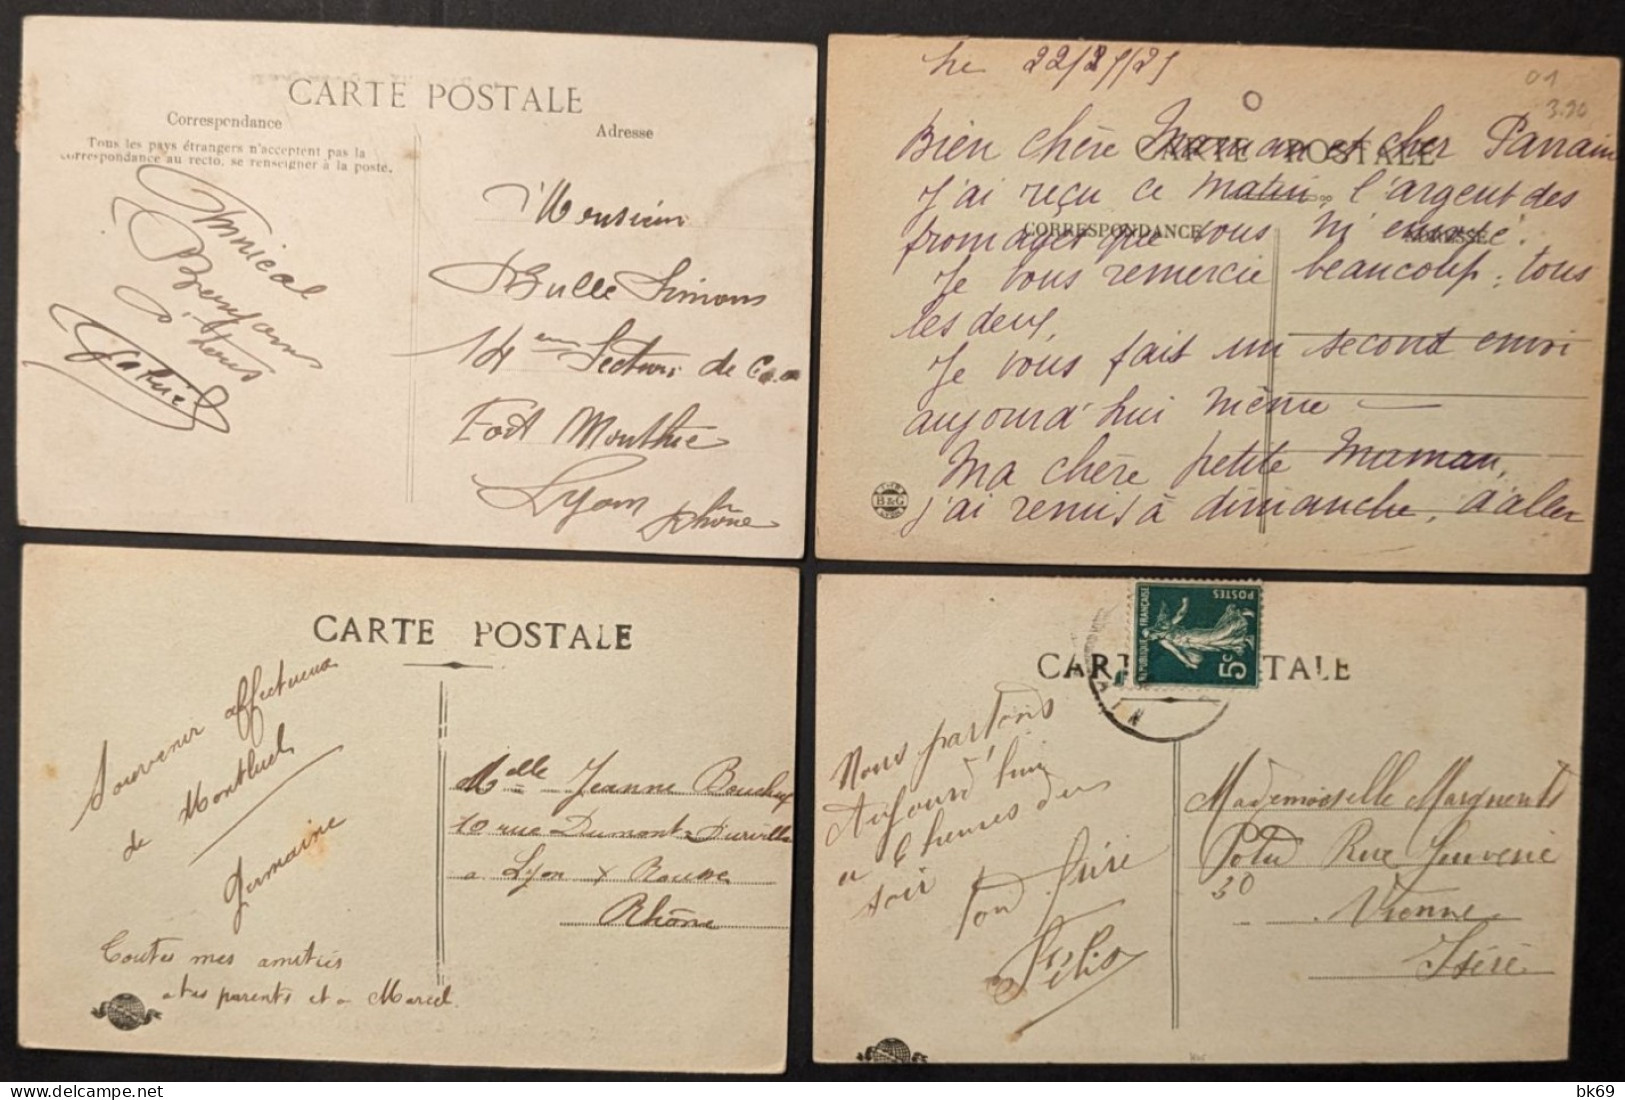 CARTE POSTALE
Correspondance
Adresse
Tous les pays étrangers n'acceptent pas la
correspondance au recto, se renseigner à la poste.
Amical
Bonjour
à tous
Gabriel
Monsieur
Bulle Simons
14 eme Section de
Fort Monthuc
Lyon
Rhône
le 22/2/25
01
3.90
Bien chère Maman et cher Parrain
CARTE POSTALE
J'ai reçu ce matin, l'argent des
CORRESPONDANCE
ADRESSE
fromages que vous m'envoyé.
Je vous remercie beaucoup, tous
les deux,
Je vous fait un second envoi
aujourd'hui même —
Ma chère petite Maman,
j'ai remis à dimanche, d'aller
B&G
CARTE POSTALE
Souvenir affectueux
de Montluel
Germaine
Toutes mes amitiés
a tes parents et a Marcel.
Melle Jeanne Bouchux
10 rue Dumont Durville
a Lyon X Rousse
Rhône
CARTE POSTALE
REPUBLIQUE FRANÇAISE
POSTES
5c
Nous partons
Aujourd'hui
a 6 heures du
soir
ton frère
Félix
Mademoiselle Marguerite
Rue Juvenie
30
Vienne
Isère
bk69